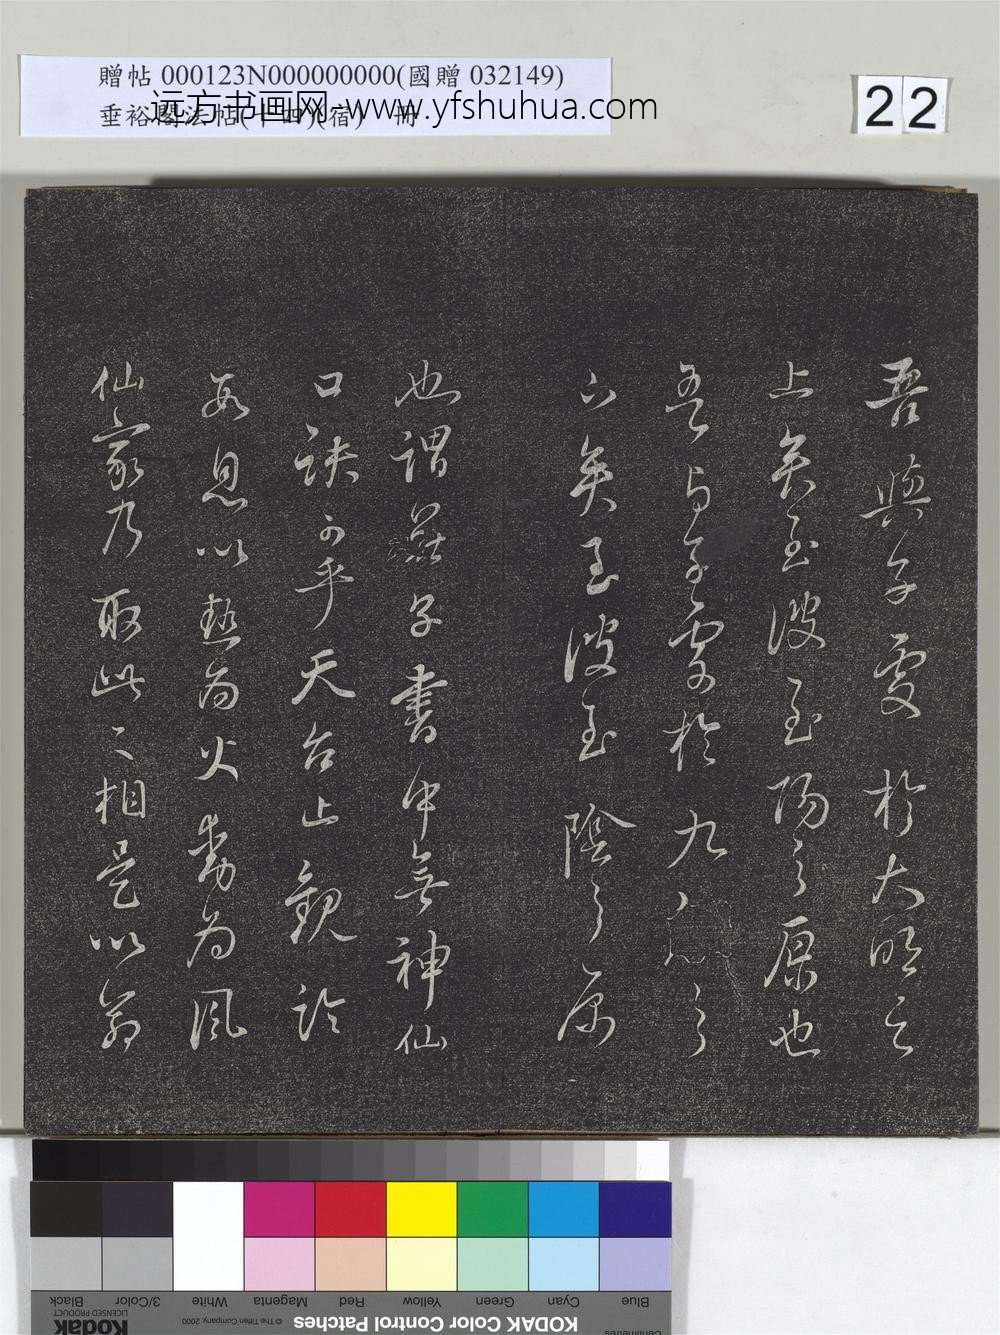 贈帖 000123N000000000(國贈 032149)
垂裕閣法帖(十四)(宿) 冊
远方书画网-www.yfshuhua.com
22
吾與子處於大明之
上矣至彼至陽之原也
吾与子處於九之
下矣至彼至陰之原
也謂莊子書中無神仙
口訣可乎天台止觀論
數息以熱為火動為風
仙家乃取此二相是以
Black
3/Color
White
Magenta
Red
Yellow
Green
Cyan
Blue
Kodak
LICENSED PRODUCT
© The Tiffen Company, 2000
KODAK Color Control Patches
Centimetres